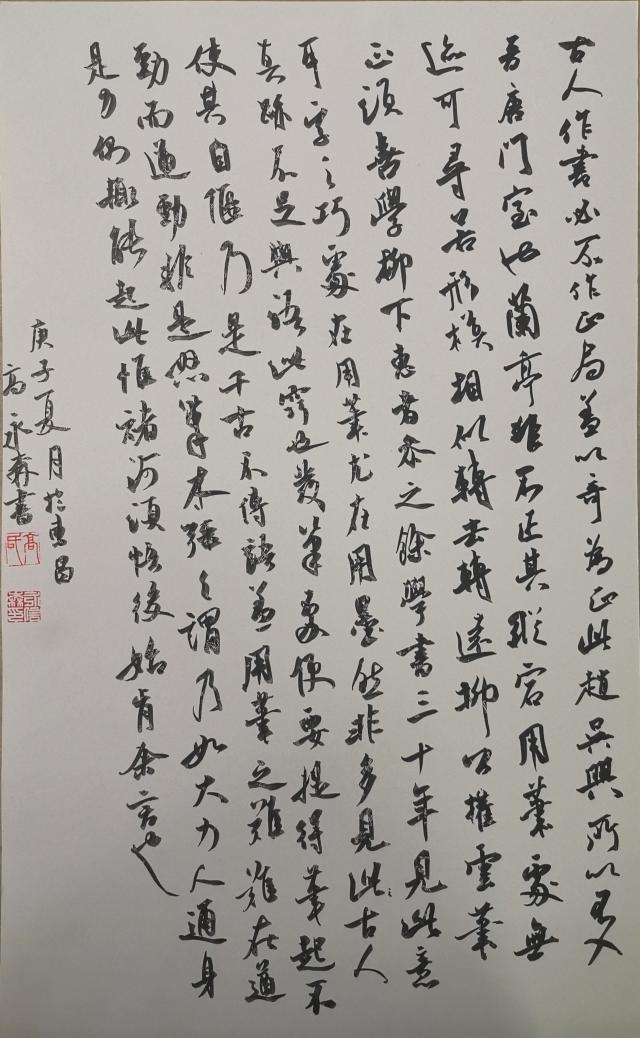 古人作書必不作正局蓋以奇為正此趙吳興所以不入
晉唐門室也蘭亭非不正其縱宕用筆處無
迹可尋若形模相似轉去轉遠柳公權云筆
正須善學柳下惠者參之餘學書三十年見此意
耳字之巧處在用筆尤在用墨然非多見此古人
真跡不足與語此竅也發筆處便要提得筆起不
使其自偃乃是千古不傳語蓋用筆之難難在遒
勁而遒勁非是怒筆木強之謂乃如大力人通身
是力倒輒能起此惟褚河須悟後始肯余言也
庚子夏月於東昌
高永森書